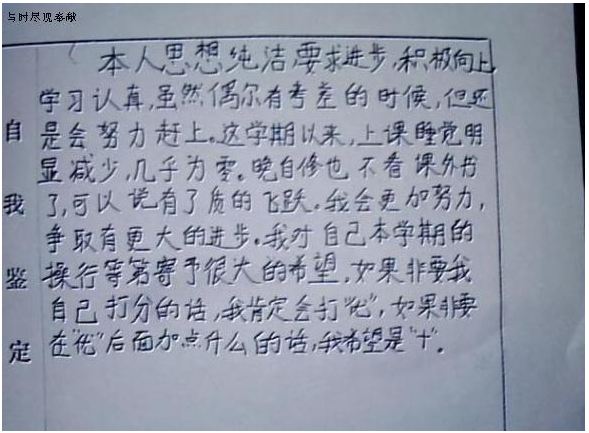 与时尽现奉献
本人思想纯洁要求进步,积极向上
学习认真,虽然偶尔有考差的时候,但还
是会努力赶上。这学期以来,上课睡觉明
显减少,几乎为零。晚自修也不看课外书
了,可以说有了质的飞跃。我会更加努力,
争取有更大的进步。我对自己本学期的
操行等第寄予很大的希望,如果非要我
自己打分的话,我肯定会打“优”,如果非要
在“优”后面加点什么的话,我希望是“十”。
自我鉴定